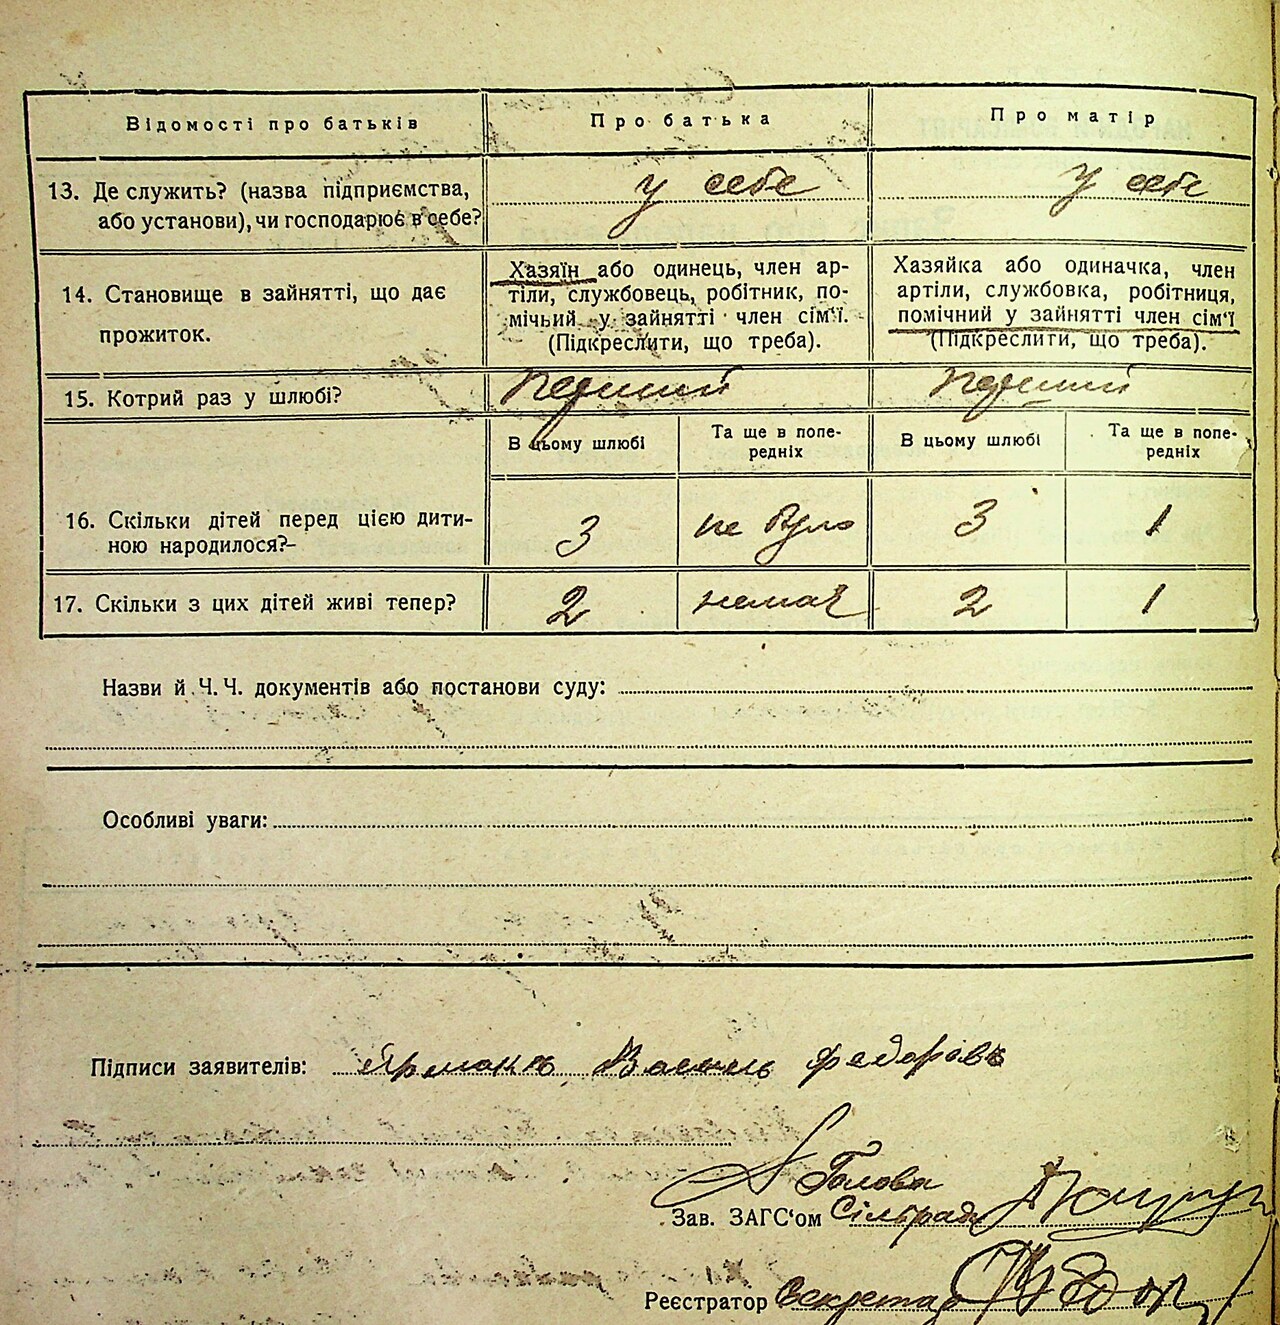 Відомості про батьків
Про батька
Про матір
13. Де служить? (назва підприємства,
або установи), чи господарює в себе?
у себе
у себе
14. Становище в зайнятті, що дає
прожиток.
Хазяїн або одинець, член ар-
тіли, службовець, робітник, по-
мічьий у зайнятті член сім'ї.
(Підкреслити, що треба).
Хазяйка або одиначка, член
артіли, службовка, робітниця,
помічний у зайнятті член сім'ї
(Підкреслити, що треба).
15. Котрий раз у шлюбі?
перший
перший
В цьому шлюбі
Та ще в попе-
редніх
В цьому шлюбі
Та ще в попе-
редніх
16. Скільки дітей перед цією дити-
ною народилося?-
3
не було
3
1
17. Скільки з цих дітей живі тепер?
2
немає
2
1
Назви й Ч. Ч. документів або постанови суду:
Особливі уваги:
Підписи заявителів: Ярмакъ Василь Федоровъ
Голова
Зав. ЗАГС'ом Сільради
Реєстратор Секретар